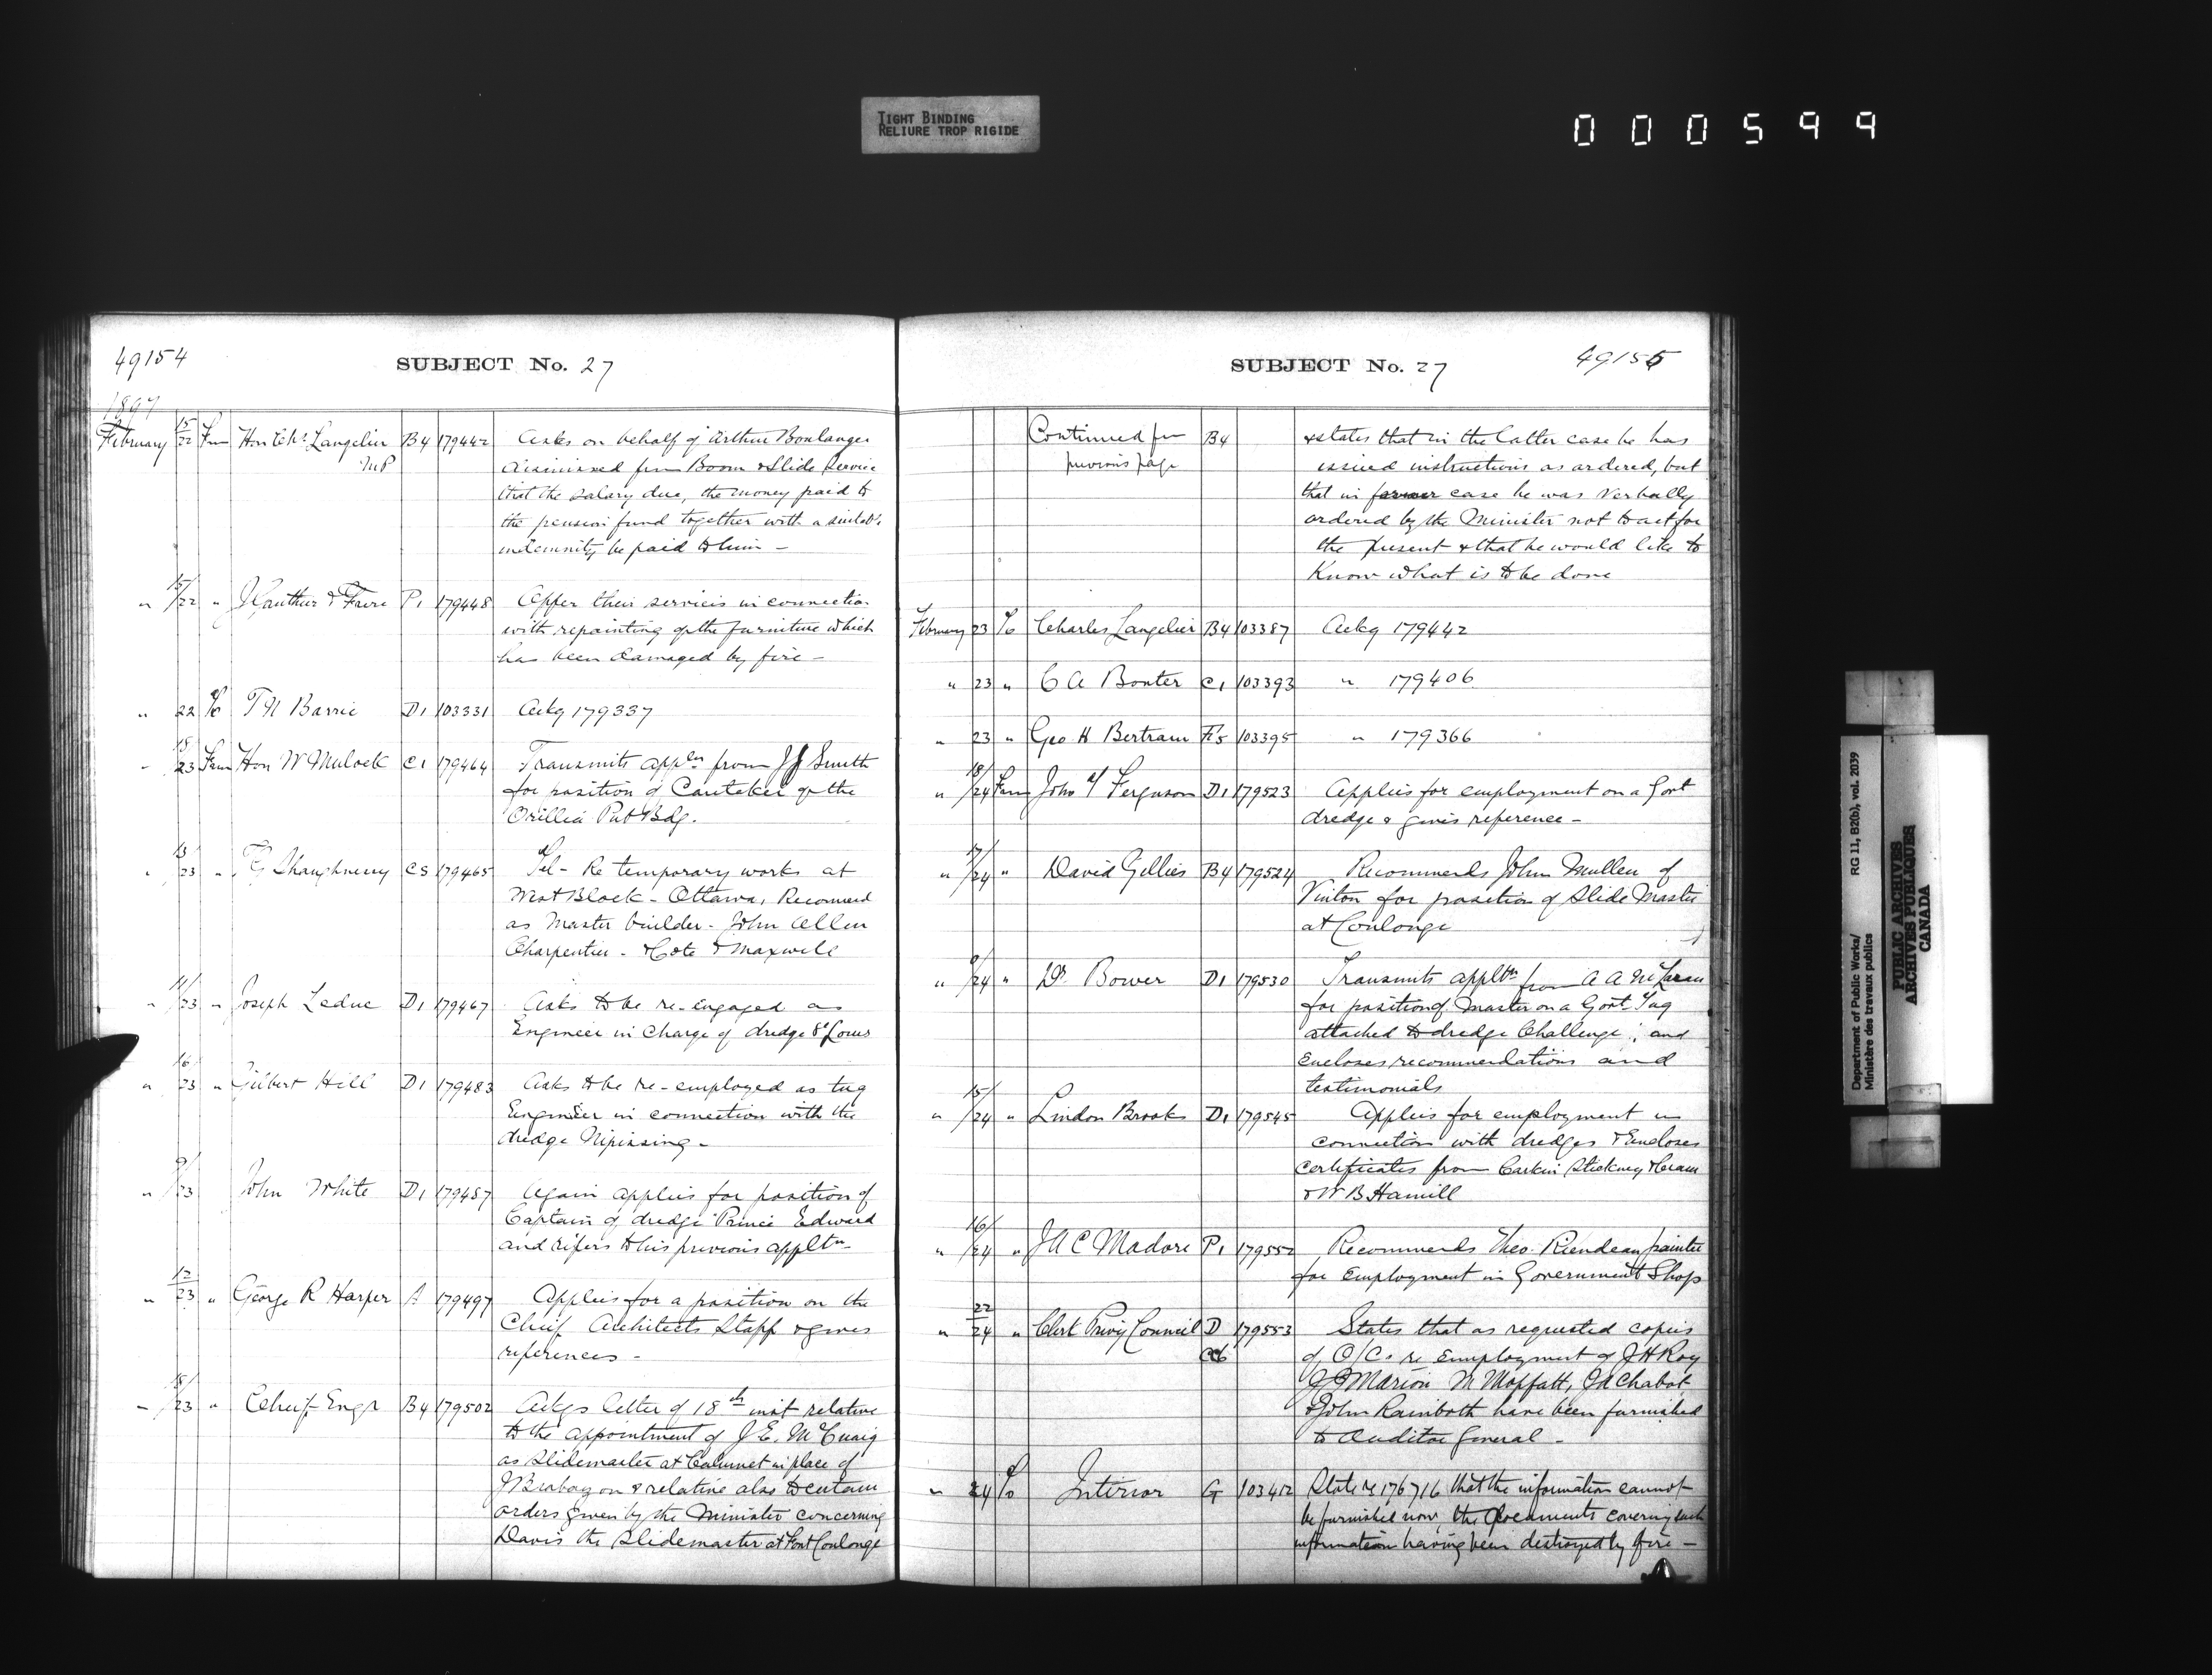 TIGHT BINDING
RELIURE TROP RIGIDE
000599
49154
SUBJECT No. 27
1897
February 15/22 Frm Hon Chs Langelier MP B4 179442 Asks on behalf of Arthur Boulanger
dismissed from Boom & Slide Service
that the salary due, the money paid to
the pension fund together with a suitable
indemnity be paid to him –
" 15/22 " J Gauthier & Frere P1 179448 Offer their services in connection
with repainting of the furniture which
has been damaged by fire –
" 22 To T N Barrie D1 103331 Ackg 179337
" 18/23 Frm Hon W Mulock C1 179464 Transmits appln from J J Smith
for position of Caretaker of the
Orillia Pub Bdg.
" 13/23 " T G Shaughnessy C5 179465 Tel – Re temporary works at
West Block – Ottawa, Recommend
as Master builder – John Allen
Charpentier – & Cote & Maxwell
" 11/23 " Joseph Leduc D1 179467 Asks to be re-engaged as
Engineer in Charge of dredge St Louis
" 16/23 " Gilbert Hill D1 179483 Asks to be re-employed as tug
Engineer in connection with the
dredge Nipissing –
" 9/23 John White D1 179487 Again applies for position of
Captain of dredge Prince Edward
and refers to his previous appltn
" 12/23 " George R Harper A 179497 Applies for a position on the
Chief Architects Staff & gives
references –
" 18/23 " Chief Engr B4 179502 Ackgs letter of 18th inst relative
to the appointment of J. E. McCuaig
as slidemaster at Calumet in place of
J Brabazon & relative also to certain
orders given by the Minister concerning
Davis the Slidemaster at Fort Coulonge
SUBJECT No. 27
49155
Continued frm previous page B4 & states that in the latter case he has
issued instructions as ordered, but
that in former case he was verbally
ordered by the Minister not to act for
the present & that he would like to
Know what is to be done
February 23 To Charles Langelier B4 103387 Ackg 179442
" 23 " C A Bonter C1 103393 " 179406
" 23 " Geo H Bertram F5 103395 " 179366
" 18/24 Frm John Y Ferguson D1 179523 Applies for employment on a Govt
dredge & gives reference –
" 17/24 " David Gillies B4 179524 Recommends John Mullen of
Vinton for position of Slide Master
at Coulonge
" 9/24 " Dr Bower D1 179530 Transmits appltn from A A McLean
for position of Master on a Govt Tug
attached to dredge Challenge; and
Encloses recommendations and
testimonials
" 15/24 " Lindon Brooks D1 179545 Applies for employment in
connection with dredges & Encloses
certificates from Larkin Stickney & Cram
& W B Hamill
" 16/24 " J A C Madore P1 179552 Recommends Theo. Riendeau painter
for Employment in Government Shop
" 22/24 " Clerk Privy Council D 179553 States that as requested copies
of O/Cs re Employment of J H Roy
J J Marion M Moffatt, J A Chabot
& John Rainboth have been furnished
to Auditor General –
" 24 To Interior G 103412 State re 176716 that the information cannot
be furnished now, the documents covering such
information having been destroyed by fire –
Department of Public Works/
Ministère des travaux publics
RG 11, B2(b), vol. 2039
PUBLIC ARCHIVES
ARCHIVES PUBLIQUES
CANADA